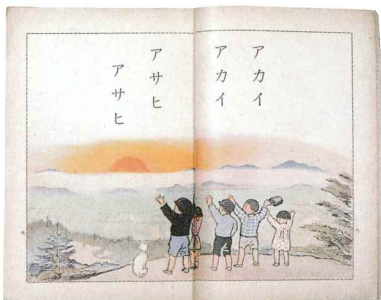 アカイ
アカイ
アサヒ
アサヒ